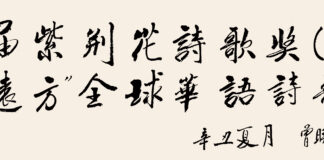 届紫荆花詩歌奖(
遠方”全球華語詩
辛丑夏月 曾